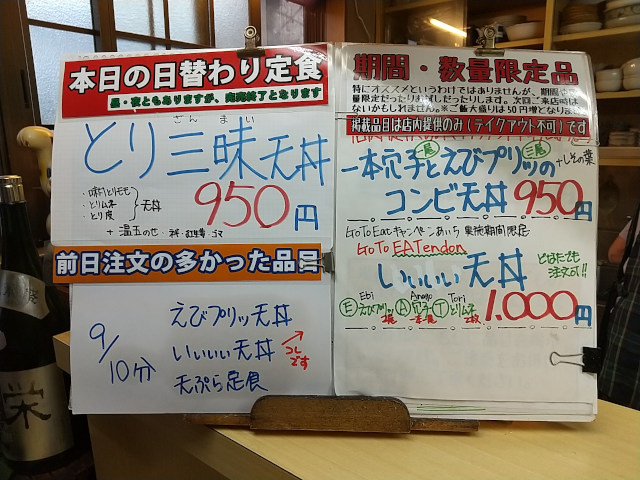 本日の日替わり定食
昼・夜ともありますが、完売終了となります
ざんまい
とり三昧天丼
・とりムネ
・とり皮
天丼
950円
前日注文の多かった品目
9/10分
えびプリッ天丼
いいいい天丼
天ぷら定食
コレです
期間・数量限定品
特にオススメというわけではありませんが、期間や数
量限定だったりお試しだったりします。次回ご来店時は
ないかもしれません。※ご飯大盛りは50円増となります
掲載品目は店内提供のみ(テイクアウト不可)です
一本穴子と二尾えびプリッの三尾
+しその葉
コンビ天丼950円
GoToEatキャンペーンあいち 実施期間限定
GoTo EATendon
いいいい天丼
どなたでも
注文可!!
Ebi Anago Tori
Ⓔえびプリッ Ⓐ穴子 Ⓣとりムネ
1.000円